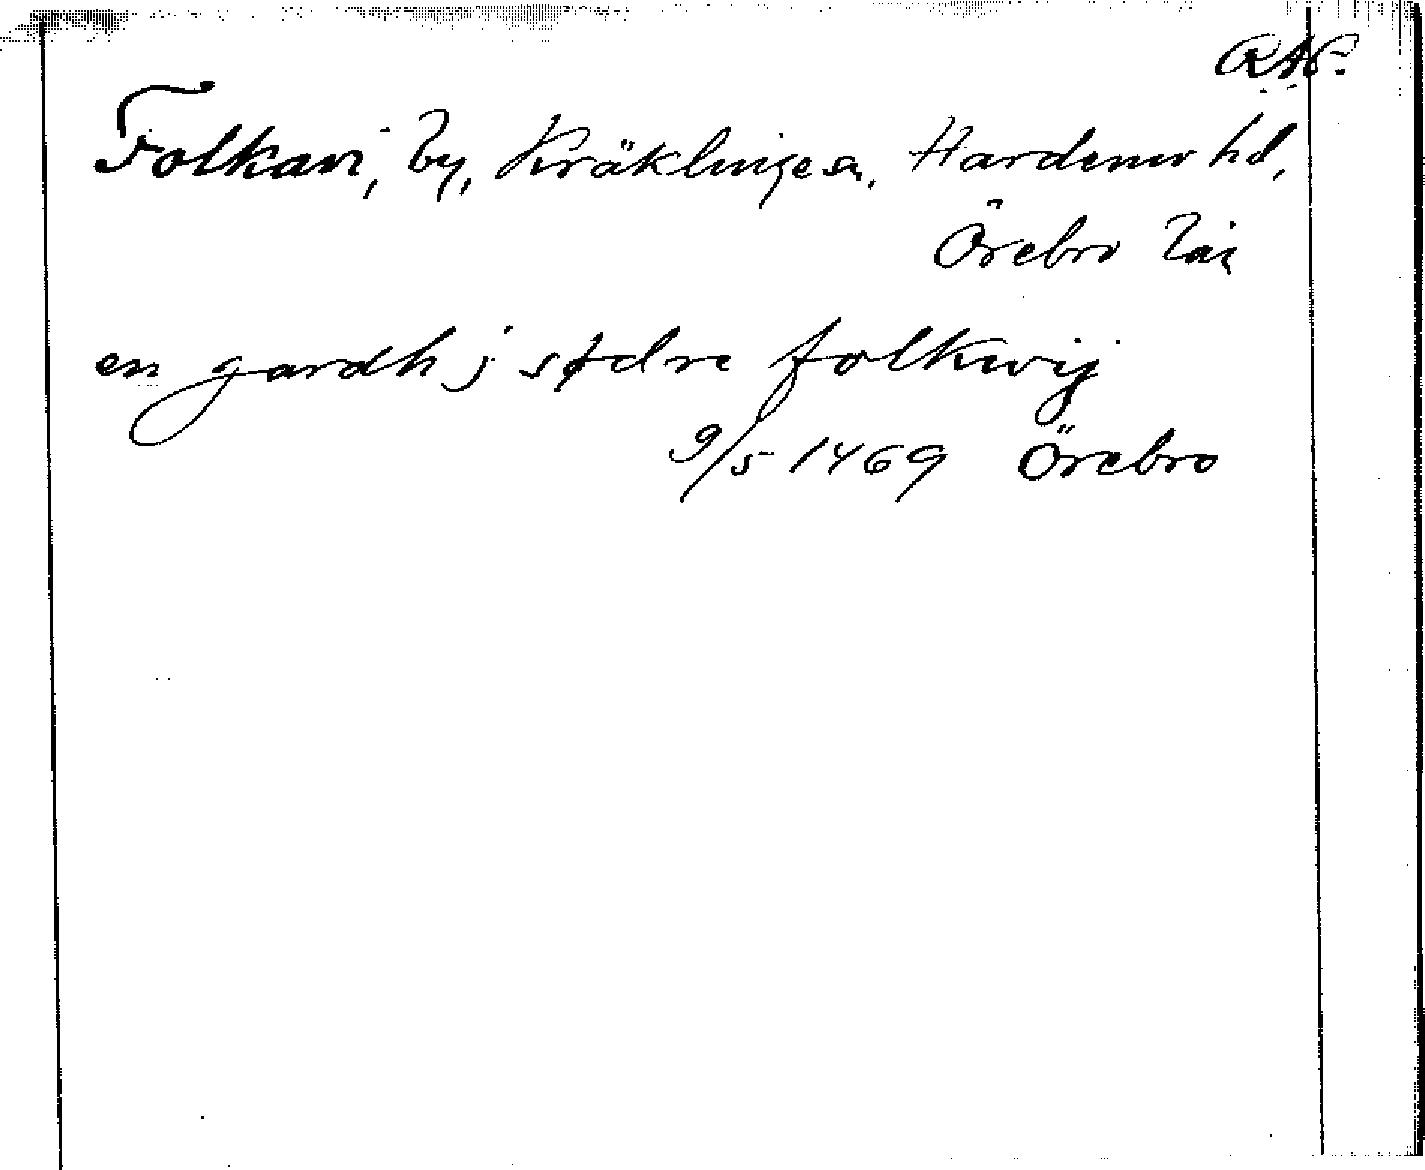 RAP.
Folkavi, by, Kräklinge sn, Hardemo hd,
Örebro län
en gardh j sødre folkwij
9/5 1469 Örebro